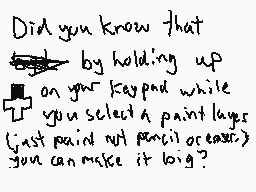 Did you know that
by holding up
on your keypad while
you select a paint layer
(just paint not pencil or eraser)
you can make it big?